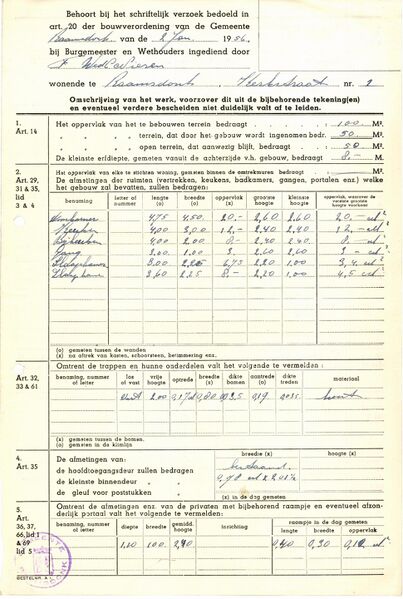 Behoort bij het schriftelijk verzoek bedoeld in
art. 20 der bouwverordening van de Gemeente
Raamsdonk van de 2 Jan. 1956,
bij Burgemeester en Wethouders ingediend door
wonende te Raamsdonk, Kerkstraat nr. 2
Omschrijving van het werk, voorzover dit uit de bijbehorende tekening(en)
en eventueel verdere bescheiden niet duidelijk valt af te leiden.
1.
Art. 14
Het oppervlak van het te bebouwen terrein bedraagt 100 M².
" " " " terrein, dat door het gebouw wordt ingenomen bedr. 50 M².
" " " " terrein, dat open aanwezig blijft, bedraagt 50 M².
De kleinste erfdiepte, gemeten vanuit de achterzijde v.h. gebouw, bedraagt 8.- M.
2.
Art. 29,
31 & 35,
lid
3 & 4
Het oppervlak van elke te stichten woning, gemeten binnen de omtrekmuren bedraagt M².
De afmetingen der ruimten (vertrekken, keukens, badkamers, gangen, portalen enz.) welke
het gebouw zal bevatten, zullen bedragen:
benaming letter of nummer lengte (o) breedte (o) oppervlak (x) grootste hoogte kleinste hoogte
4,75 4,50 20,- 2,60 2,60 20,- m²
Keuken 4,00 3,00 12,- 2,40 2,40 12,- m²
4,00 2,00 8,- 2,40 2,40 8,- m²
Gang 3,00 1,00 3 2,60 2,60 3 - m²
Slaapkamer 3,00 2,25 6,75 2,20 1,00 3,4 m²
3,60 2,25 8,- 2,20 1,00 4,5 m²
(o) gemeten tussen de wanden
(x) na aftrek van kasten, schoorsteen, betimmering enz.
Art. 32,
33 & 61
Omtrent de trappen en hunne onderdelen valt het volgende te vermelden:
benaming, nummer of letter los of vast vrije hoogte optrede breedte (x) dikte bomen aantrede (o) dikte treden materiaal
vast 2.00 0,17 0,80 0,19 hout
(x) gemeten tussen de bomen.
(o) gemeten in de klimlijn
4.
Art. 35
De afmetingen van:
de hoofdtoegangsdeur zullen bedragen
de kleinste binnendeur "
de gleuf voor poststukken "
breedte (x) hoogte (x)
bestaand
(x) in de dag gemeten
5.
Art.
36, 37,
66, lid 1
& 69
lid 5
Omtrent de afmetingen enz. van de privaten met bijbehorend raampje en eventueel afzon-
derlijk portaal valt het volgende te vermelden:
benaming, nummer of letter diepte breedte gemidd. hoogte inrichting raampje in de dag gemeten
lengte breedte oppervlak
1,10 1.00 2,40 0,40 0,30 0,12 m²